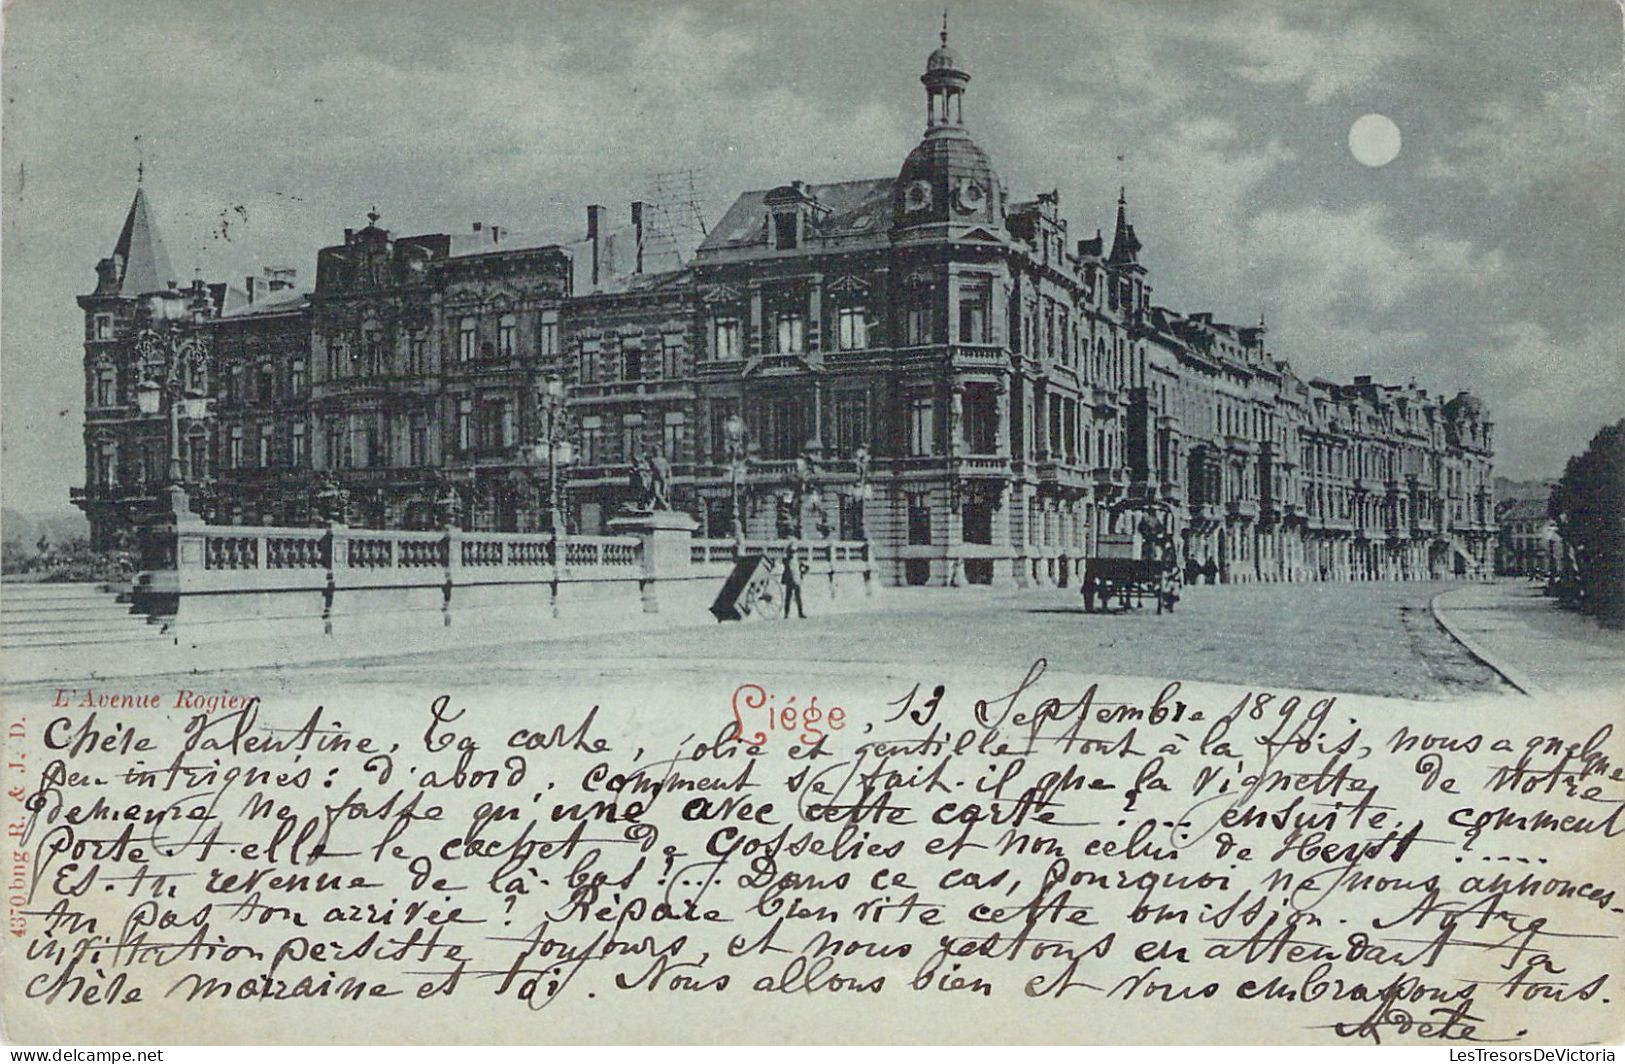 L'Avenue Rogier
Liége, 13 Septembre 1899.
4370 bng R. & J. D.
Chère Valentine, Ta carte, jolie et gentille tout à la fois, nous a quelque
peu intrigués: d'abord, comment se fait-il que la vignette de Notre
demeure ne fasse qu'une avec cette carte?... ensuite, comment
porte-t-elle le cachet de Gosselies et non celui de Heyst?.....
Es-tu revenue de là-bas?... Dans ce cas, pourquoi ne nous annonces-
tu pas ton arrivée? Répare bien vite cette omission. Notre
invitation persiste toujours, et nous restons en attendant ta
chère marraine et toi. Nous allons bien et vous embrassons tous.
Adèle.
LesTresorsDeVictoria